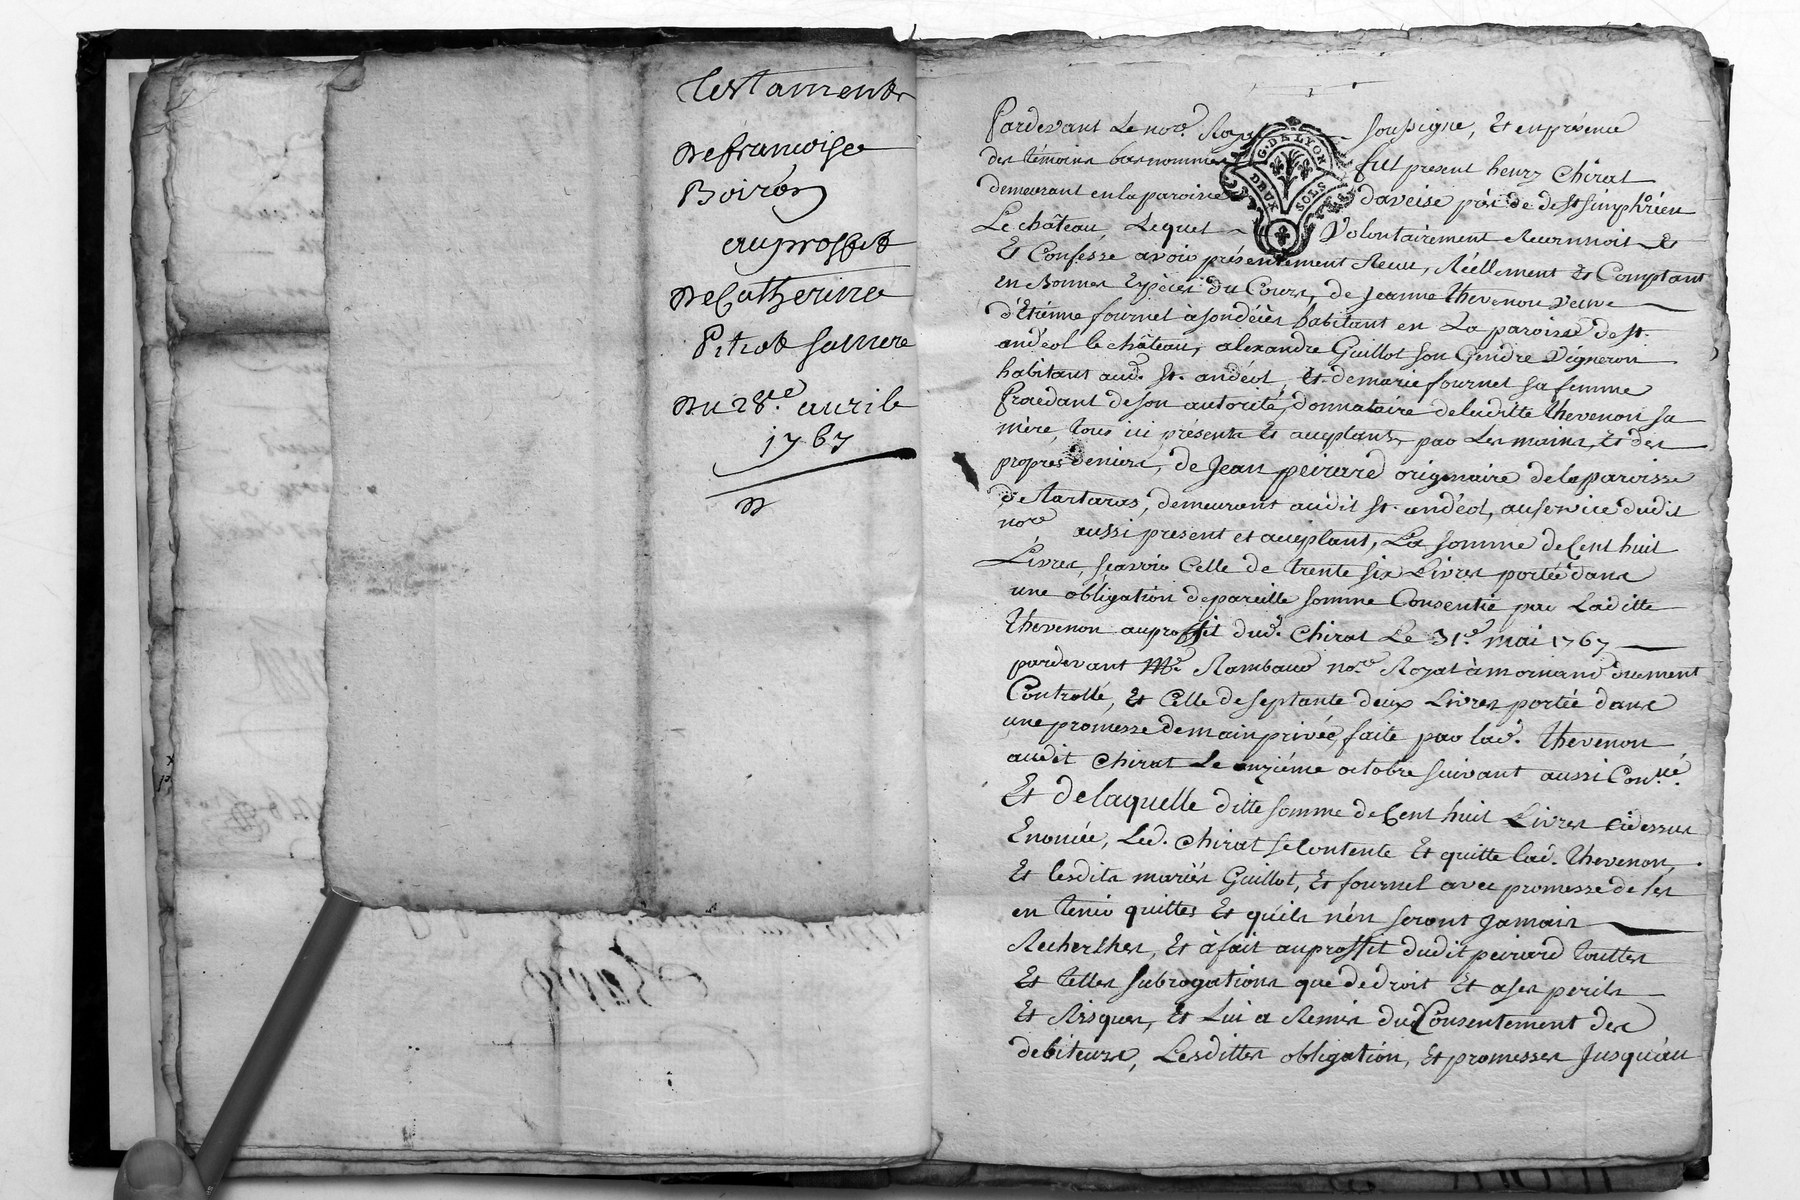 Testament
De francoise
Boiron
au proffit
De Catherine
Pitiot sa mere
Du 28.e avrile
1767
Pardevant Le no.re Royal soussigné, Et en présence
des témoins bas nommés fut present henry Chirat
demeurant en la paroisse d'aveise près de de St simphorien
Le château, Lequel Volontairement Reconnoit Et
Et Confesse avoir présentement Receu, Réellement Et Comptant
en Bonnes Espèces du Cours, de Jeanne thevenon veuve
d'Etienne fournel habitant en La paroisse de St.
andéol le château, alexandre Guillot son Gendre Vigneron
habitant aud. St. andéol, et de marie fournel sa femme
Procedant de son autorité, donnataire de laditte thevenon sa
mère, tous ici présents Et acceptants, par Les mains, Et des
propres deniers, de Jean peirard originaire de la paroisse
de tartaras, demeurant audit St. andéol, au service dudit
no.re aussi present et acceptant, La somme de Cent huit
Livres, sçavoir Celle de trente six Livres portée dans
une obligation de pareille somme Consentie par Laditte
thevenon au proffit dud. Chirat Le 31.e mai 1767
pardevant M.e Rambaud no.re Royal à mornand duement
Controllé, Et Celle de septante deux Livres portée dans
une promesse de main privée, faite par lad. thevenon
audit Chirat Le onziéme octobre suivant aussi Con.llé
Et de laquelle ditte somme de Cent huit Livres cidessus
Enoncée, Led. Chirat se Contente Et quitte lad. thevenon,
Et lesdits mariés Guillot, Et fournel avec promesse de les
en tenir quittes Et qu'ils n'én seront Jamais
Recherchés, Et à fait au proffit dudit peirard touttes
Et telles subrogations que de droit Et a ses perils
Et Risques, Et Lui a Remis du Consentement des
debiteurs, Lesdittes obligation, Et promesses Jusqu'au
G. DE LYON
DEUX SOLS